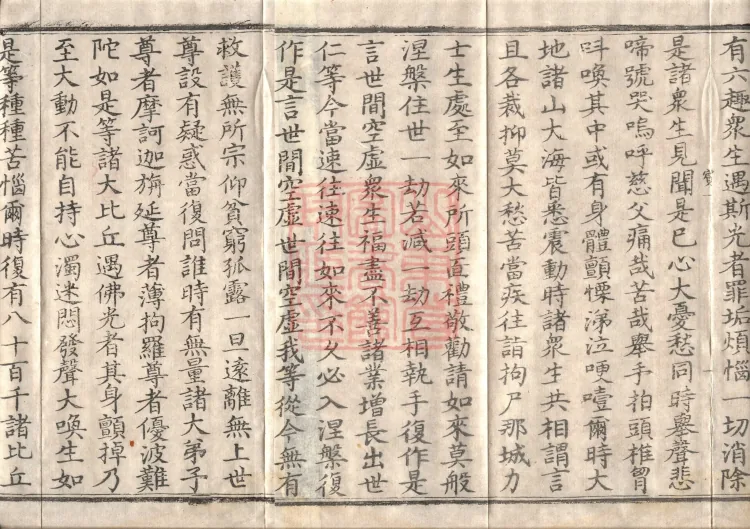 有六趣衆生遇斯光者罪垢煩惱一切消除
是諸衆生見聞是已心大憂愁同時舉聲悲
啼號哭嗚呼慈父痛哉苦哉舉手拍頭椎胷
呌喚其中或有身體顫慄涕泣哽噎爾時大
地諸山大海皆悉震動時諸衆生共相謂言
且各裁抑莫大愁苦當疾往詣拘尸那城力
士生處至如來所頭面禮敬勸請如來莫般
涅槃住世一劫若減一劫互相執手復作是
言世間空虛衆生福盡不善諸業增長出世
仁等今當速往速往如來不久必入涅槃復
作是言世間空虛世間空虛我等從今無有
救護無所宗仰貧窮孤露一旦遠離無上世
尊設有疑惑當復問誰時有無量諸大弟子
尊者摩訶迦旃延尊者薄拘羅尊者優波難
陀如是等諸大比丘遇佛光者其身顫掉乃
至大動不能自持心濁迷悶發聲大喚生如
是等種種苦惱爾時復有八十百千諸比丘